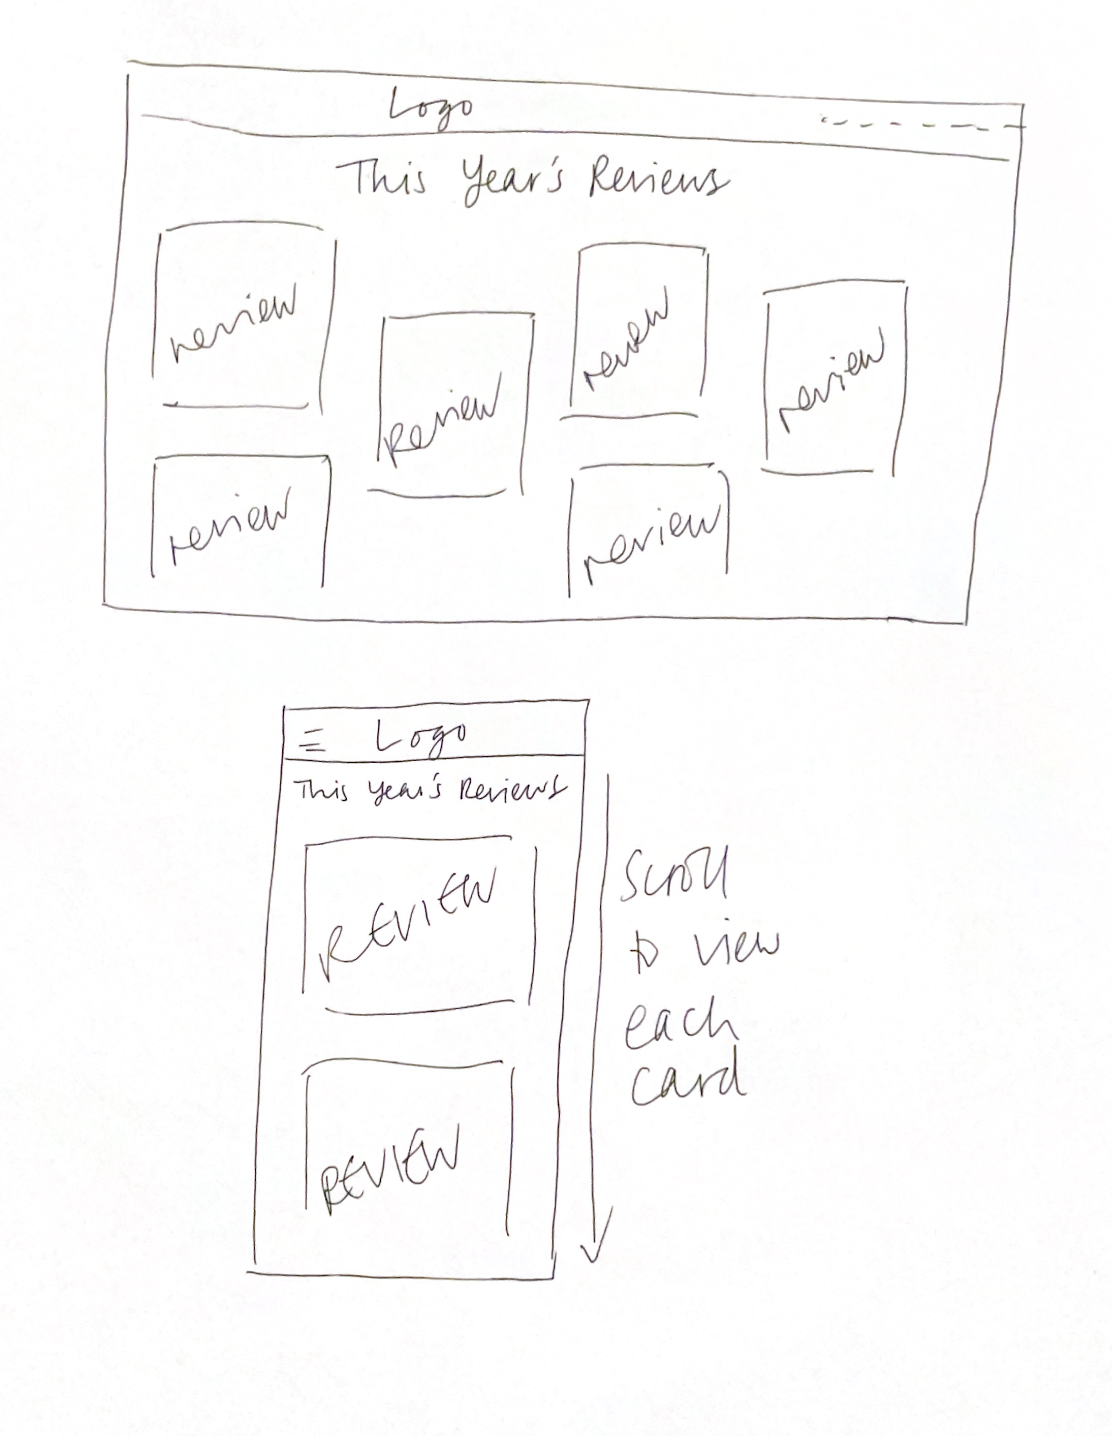 Logo
This Year's Reviews
review
Review
review
review
review
review
Logo
This Year's Reviews
REVIEW
REVIEW
scroll
to view
each
card